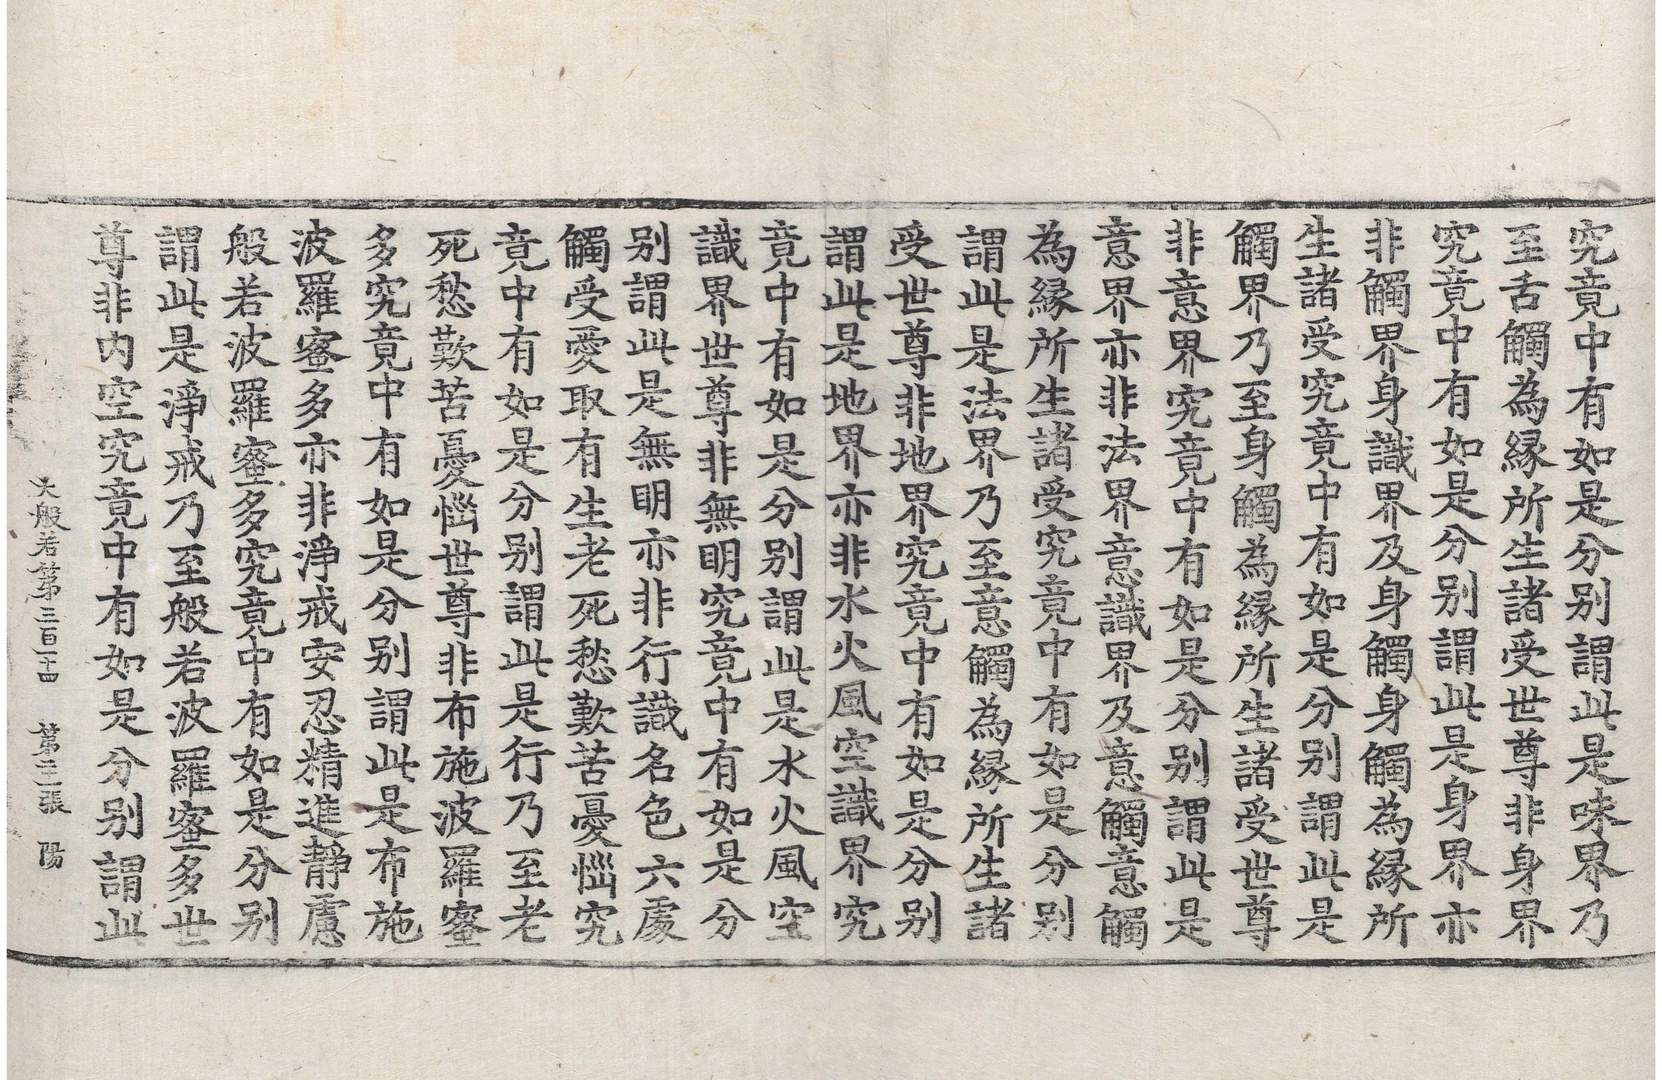 究竟中有如是分别謂此是味界乃
至舌觸為縁所生諸受世尊非身界
究竟中有如是分别謂此是身界亦
非觸界身識界及身觸身觸為縁所
生諸受究竟中有如是分别謂此是
觸界乃至身觸為縁所生諸受世尊
非意界究竟中有如是分别謂此是
意界亦非法界意識界及意觸意觸
為縁所生諸受究竟中有如是分别
謂此是法界乃至意觸為縁所生諸
受世尊非地界究竟中有如是分别
謂此是地界亦非水火風空識界究
竟中有如是分别謂此是水火風空
識界世尊非無明究竟中有如是分
别謂此是無明亦非行識名色六處
觸受愛取有生老死愁歎苦憂惱究
竟中有如是分别謂此是行乃至老
死愁歎苦憂惱世尊非布施波羅蜜
多究竟中有如是分别謂此是布施
波羅蜜多亦非淨戒安忍精進靜慮
般若波羅蜜多究竟中有如是分别
謂此是淨戒乃至般若波羅蜜多世
尊非内空究竟中有如是分别謂此
大般若第三百一十四 第三張 陽